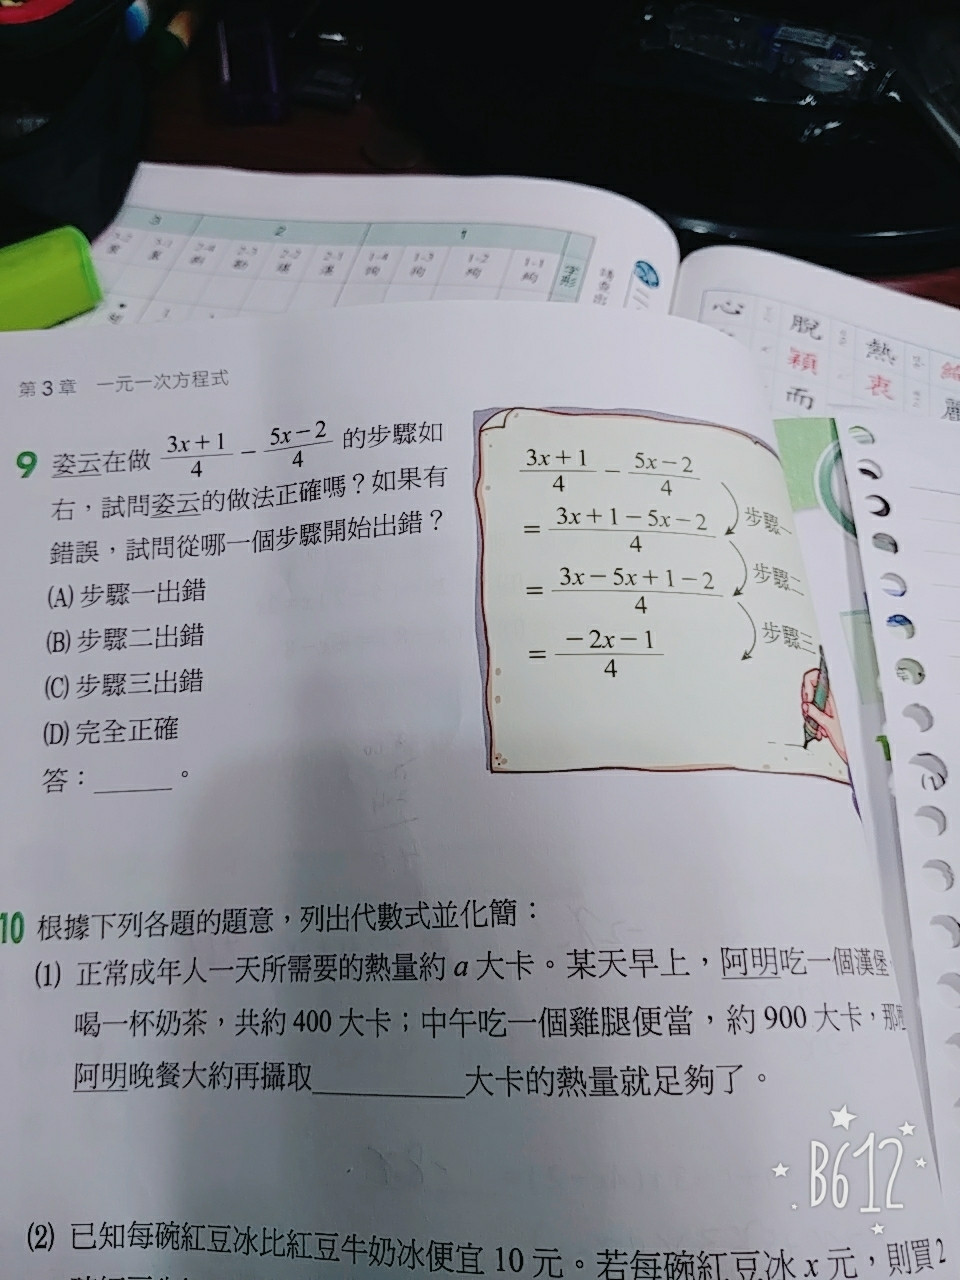 3
2
1
2-4
2-3
2-2
2-1
1-4
1-3
1-2
1-1
字形
心
脫
熱
穎
衷
而
麗
第3章 一元一次方程式
9 姿云在做 (3x+1)/4 - (5x-2)/4 的步驟如
右，試問姿云的做法正確嗎？如果有
錯誤，試問從哪一個步驟開始出錯？
(A) 步驟一出錯
(B) 步驟二出錯
(C) 步驟三出錯
(D) 完全正確
答：______。
(3x+1)/4 - (5x-2)/4
= (3x+1-5x-2)/4
步驟一
= (3x-5x+1-2)/4
步驟二
= (-2x-1)/4
步驟三
10 根據下列各題的題意，列出代數式並化簡：
(1) 正常成年人一天所需要的熱量約 a 大卡。某天早上，阿明吃一個漢堡
喝一杯奶茶，共約 400 大卡；中午吃一個雞腿便當，約 900 大卡，那
阿明晚餐大約再攝取__________大卡的熱量就足夠了。
(2) 已知每碗紅豆冰比紅豆牛奶冰便宜 10 元。若每碗紅豆冰 x 元，則買 2
B612